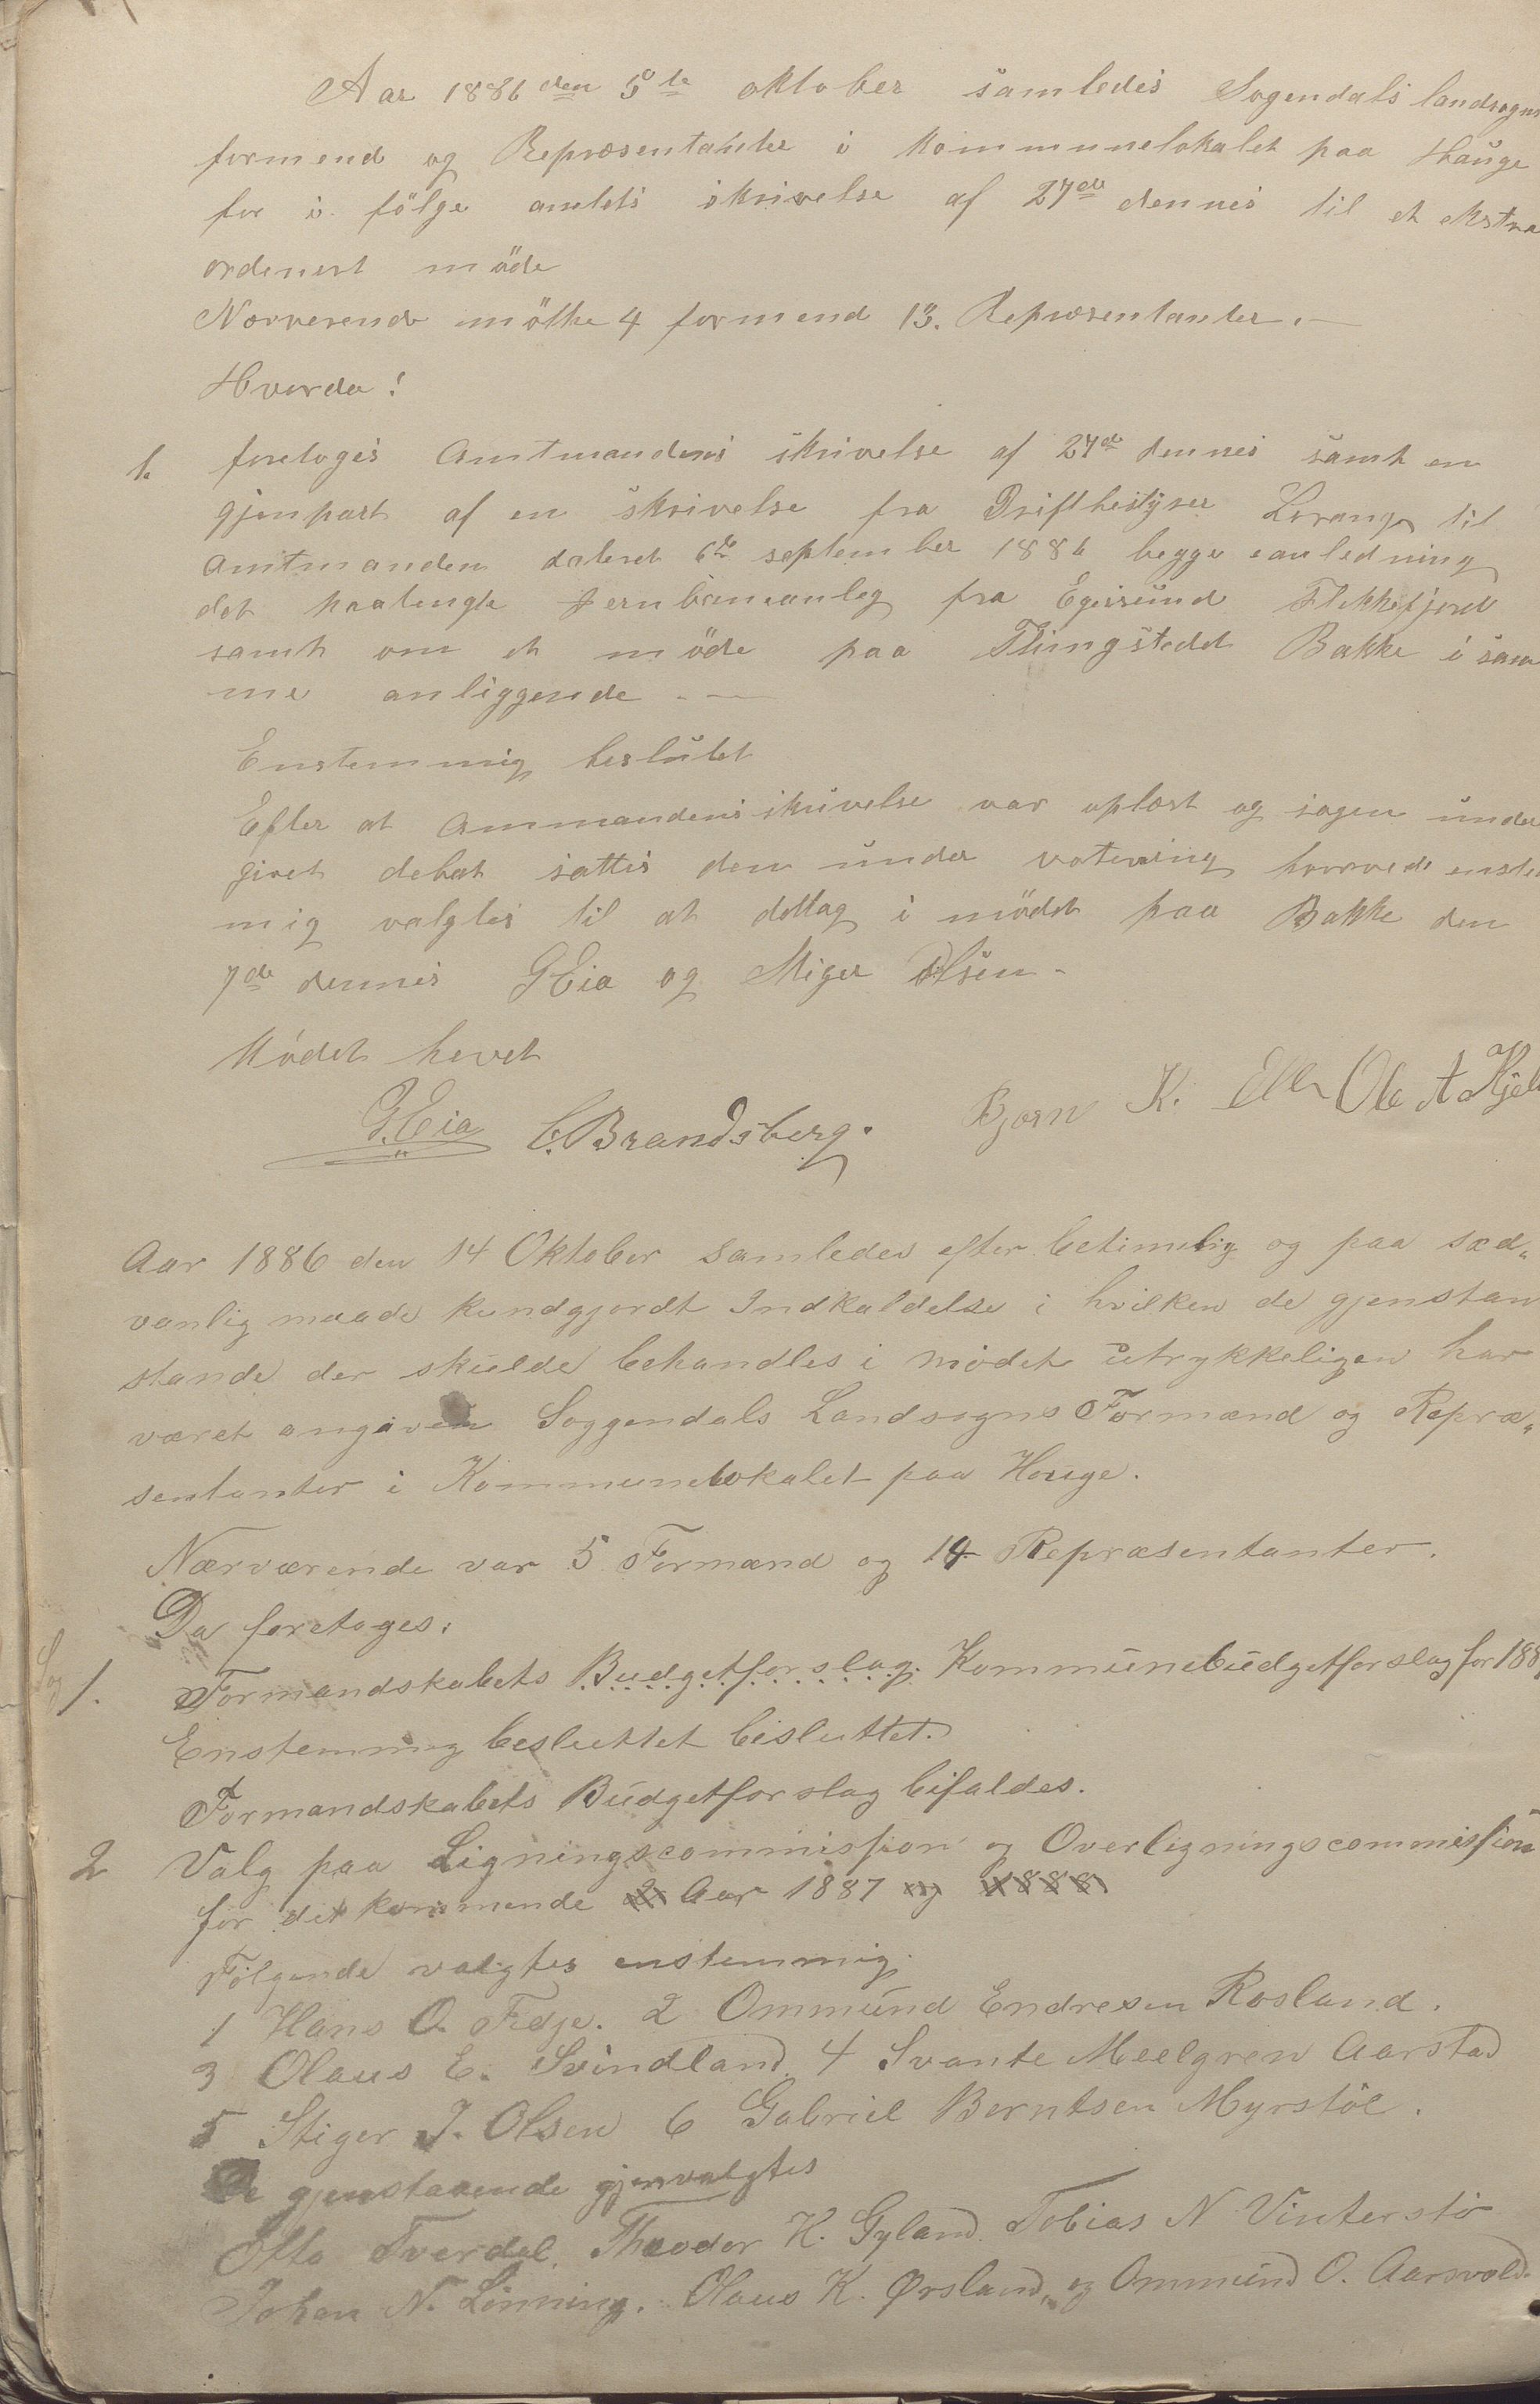 Aar 1886 den 5te oktober samledes Sogendals landsogns
formend og Repræsentanter i kommunelokalet paa Hauge
for i følge amtets skrivelse af 27de dennes til et ekstra
ordenert møde
Nærverende møtte 4 formend 13. Repræsentanter. —
Hvorda!
1. foretoges Amtmandens skrivelse af 27de dennes samt en
gjenpart af en skrivelse fra Driftbestyrer Lorange til
amtmanden dateret 6te september 1886 begge eanledning
det paatengte Jernbaneanleg fra Egersund Flekkefjord
samt om et møde paa Thingstedet Bakke i sam
me anliggende - —
Enstemmig beslutet
Efter at Ammandens skrivelse var oplæst og sagen under
givet debat sattes den under votering hvorved enste
mig valgtes til at deltag i mødet paa Bakke den
7de dennes G Eia og Stiger Olsen -
Mødet hevet
G. Eia C. Brandsberg. Bjørn K. Ole A Kjel
Aar 1886 den 14 Oktober samledes efter betimelig og paa sæd„
vanlig maade kundgjordt Indkaldelse i hvilken de gjenstan
stande der skulde behandles i mødet utrykkeligen har
været angiven Soggendals Landsogns Formænd og Repræ„
sentanter i Kommunelokalet paa Houge.
Nærværende var 5 Formænd og 14 Repræsentanter.
Da foretoges:
Sag 1. Formandskabets Budgetforslag. Kommunebudgetforslag for 188
Enstemmig besluttet besluttet.
Formandskabets Budgetforslag bifaldes.
2 Valg paa Ligningscommission og Overligningscommission
for det kommende 2 Aar 1887 og 1888
Følgende valgtes enstemmig.
1 Hans O. Fedje. 2 Ommund Endresen Rosland.
3 Olaus E. Svindland. 4 Svante Meelgren Aarstad
5 Stiger J. Olsen 6 Gabriel Berntsen Myrstøl.
De gjenstaaende gjenvalgtes
Otto Tverdal. Theodor K. Gyland. Tobias N Vinterstø
Johan N. Lønning. Olaus K. Ørsland, og Ommund O. Aarsvold.